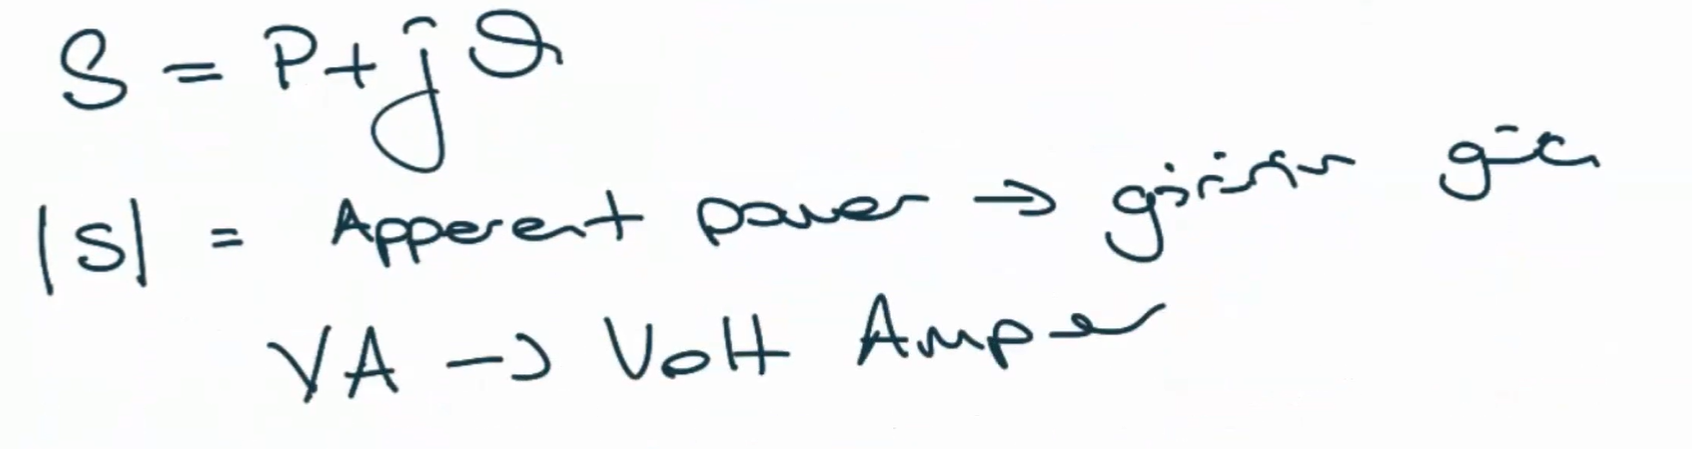 S = P + jQ
|S| = Apperent power → görünür güç
VA → Volt Amper